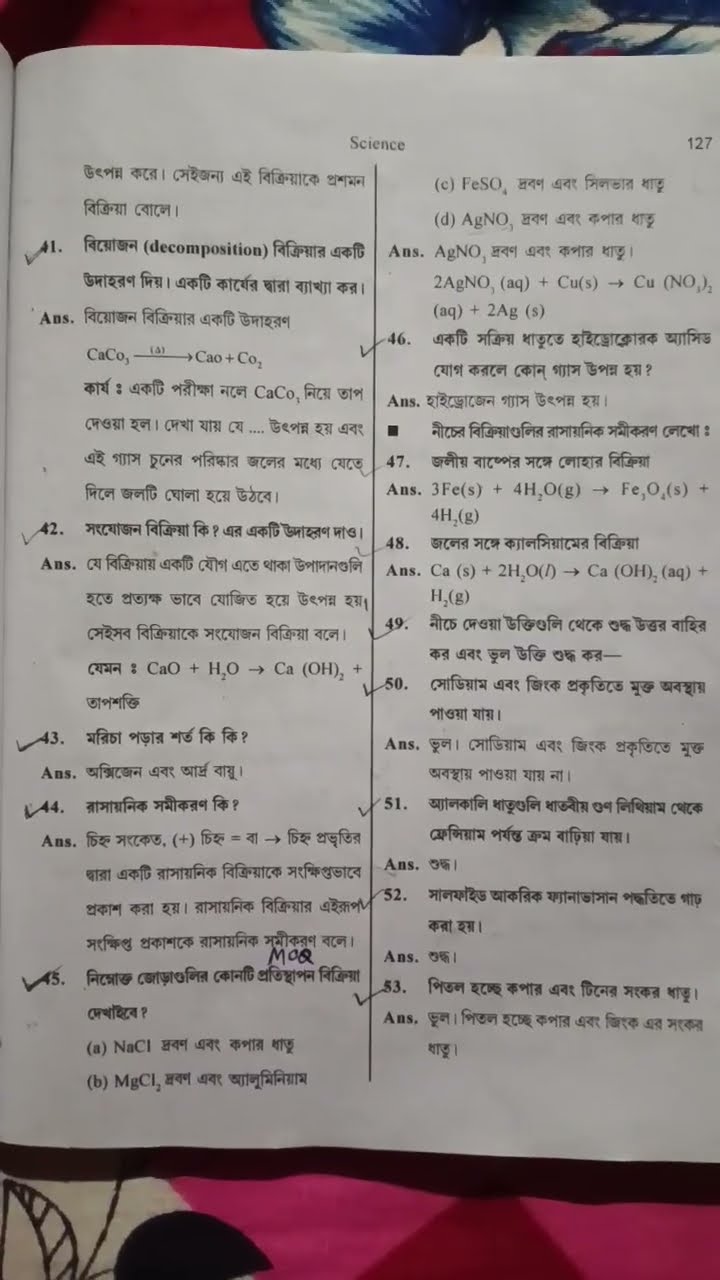 Science
127
উৎপন্ন করে। সেইজন্য এই বিক্রিয়াকে প্রশমন
বিক্রিয়া বোলে।
41. বিয়োজন (decomposition) বিক্রিয়ার একটি
উদাহরণ দিয়। একটি কার্যের দ্বারা ব্যাখ্যা কর।
Ans. বিয়োজন বিক্রিয়ার একটি উদাহরণ
CaCo₃ —(Δ)→ Cao + Co₂
কার্য ঃ একটি পরীক্ষা নলে CaCo₃ নিয়ে তাপ
দেওয়া হল। দেখা যায় যে .... উৎপন্ন হয় এবং
এই গ্যাস চুনের পরিষ্কার জলের মধ্যে যেতে
দিলে জলটি ঘোলা হয়ে উঠবে।
42. সংযোজন বিক্রিয়া কি? এর একটি উদাহরণ দাও।
Ans. যে বিক্রিয়ায় একটি যৌগ এতে থাকা উপাদানগুলি
হতে প্রত্যক্ষ ভাবে যোজিত হয়ে উৎপন্ন হয়,
সেইসব বিক্রিয়াকে সংযোজন বিক্রিয়া বলে।
যেমন ঃ CaO + H₂O → Ca (OH)₂ +
তাপশক্তি
43. মরিচা পড়ার শর্ত কি কি?
Ans. অক্সিজেন এবং আর্দ্র বায়ূ।
44. রাসায়নিক সমীকরণ কি?
Ans. চিহ্ন সংকেত, (+) চিহ্ন = বা → চিহ্ন প্রভৃতির
দ্বারা একটি রাসায়নিক বিক্রিয়াকে সংক্ষিপ্তভাবে
প্রকাশ করা হয়। রাসায়নিক বিক্রিয়ার এইরূপ
সংক্ষিপ্ত প্রকাশকে রাসায়নিক সমীকরণ বলে।
MCQ
45. নিম্নোক্ত জোড়াগুলির কোনটি প্রতিস্থাপন বিক্রিয়া
দেখাইবে?
(a) NaCl দ্রবণ এবং কপার ধাতু
(b) MgCl₂ দ্রবণ এবং অ্যালুমিনিয়াম
(c) FeSO₄ দ্রবণ এবং সিলভার ধাতু
(d) AgNO₃ দ্রবণ এবং কপার ধাতু
Ans. AgNO₃ দ্রবণ এবং কপার ধাতু।
2AgNO₃ (aq) + Cu(s) → Cu (NO₃)₂
(aq) + 2Ag (s)
46. একটি সক্রিয় ধাতুতে হাইড্রোক্লোরক অ্যাসিড
যোগ করলে কোন্ গ্যাস উপন্ন হয়?
Ans. হাইড্রোজেন গ্যাস উৎপন্ন হয়।
■ নীচের বিক্রিয়াগুলির রাসায়নিক সমীকরণ লেখো ঃ
47. জলীয় বাষ্পের সঙ্গে লোহার বিক্রিয়া
Ans. 3Fe(s) + 4H₂O(g) → Fe₃O₄(s) +
4H₂(g)
48. জলের সঙ্গে ক্যালসিয়ামের বিক্রিয়া
Ans. Ca (s) + 2H₂O(l) → Ca (OH)₂ (aq) +
H₂(g)
49. নীচে দেওয়া উক্তিগুলি থেকে শুদ্ধ উত্তর বাহির
কর এবং ভুল উক্তি শুদ্ধ কর—
50. সোডিয়াম এবং জিংক প্রকৃতিতে মুক্ত অবস্থায়
পাওয়া যায়।
Ans. ভুল। সোডিয়াম এবং জিংক প্রকৃতিতে মুক্ত
অবস্থায় পাওয়া যায় না।
51. অ্যালকালি ধাতুগুলি ধাতবীয় গুণ লিথিয়াম থেকে
ফ্রেন্সিয়াম পর্যন্ত ক্রম বাঢ়িয়া যায়।
Ans. শুদ্ধ।
52. সালফাইড আকরিক ফ্যানাভাসান পদ্ধতিতে গাঢ়
করা হয়।
Ans. শুদ্ধ।
53. পিতল হচ্ছে কপার এবং টিনের সংকর ধাতু।
Ans. ভুল। পিতল হচ্ছে কপার এবং জিংক এর সংকর
ধাতু।